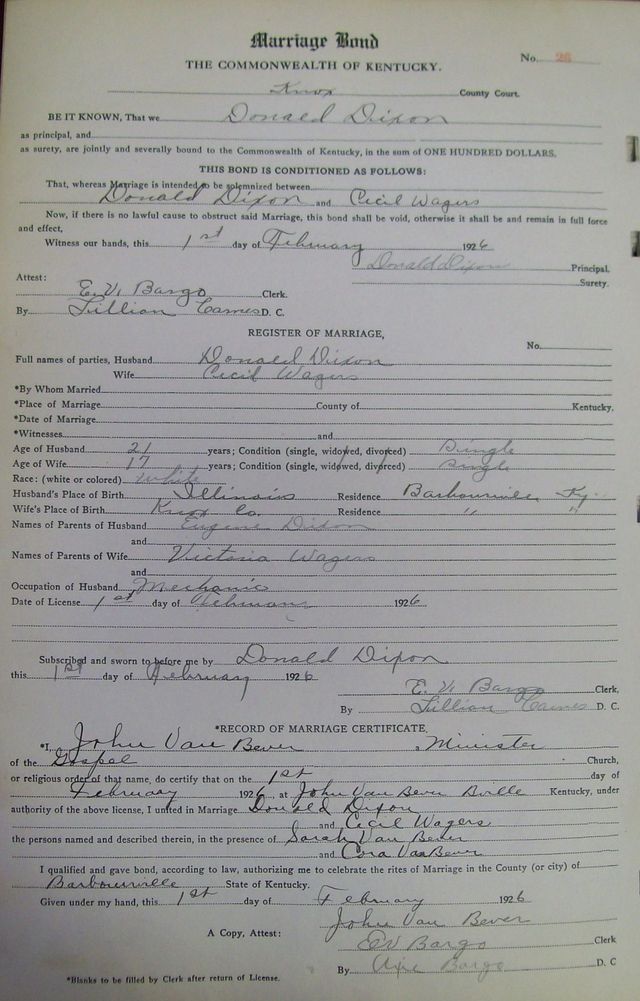 Marriage Bond
No. 26
THE COMMONWEALTH OF KENTUCKY.
Knox County Court.
BE IT KNOWN, That we Donald Dixon
as principal, and
as surety, are jointly and severally bound to the Commonwealth of Kentucky, in the sum of ONE HUNDRED DOLLARS.
THIS BOND IS CONDITIONED AS FOLLOWS:
That, whereas Marriage is intended to be solemnized between
Donald Dixon and Cecil Wagers
Now, if there is no lawful cause to obstruct said Marriage, this bond shall be void, otherwise it shall be and remain in full force
and effect,
Witness our hands, this 1st day of February 1926
Donald Dixon Principal.
Surety.
Attest:
E. V. Bargo Clerk.
By Lillian Carnes D. C.
REGISTER OF MARRIAGE,
No.
Full names of parties, Husband Donald Dixon
Wife Cecil Wagers
*By Whom Married
*Place of Marriage County of Kentucky.
*Date of Marriage
*Witnesses and
Age of Husband 21 years; Condition (single, widowed, divorced) Single
Age of Wife 17 years; Condition (single, widowed, divorced) Single
Race: (white or colored) White
Husband's Place of Birth Illinois Residence Barbourville Ky.
Wife's Place of Birth Knox Co. Residence " "
Names of Parents of Husband Eugene Dixon
and
Names of Parents of Wife Victoria Wagers
and
Occupation of Husband Mechanic
Date of License 1st day of February 1926
Subscribed and sworn to before me by Donald Dixon
this 1st day of February 1926
E. V. Bargo Clerk,
By Lillian Carnes D. C.
*RECORD OF MARRIAGE CERTIFICATE,
*I, John Van Bever, Minister
of the Gospel Church,
or religious order of that name, do certify that on the 1st day of
February 1926, at John Van Bever Bville Kentucky, under
authority of the above license, I united in Marriage Donald Dixon
and Cecil Wagers
the persons named and described therein, in the presence of Sarah Van Bever
and Cora Van Bever
I qualified and gave bond, according to law, authorizing me to celebrate the rites of Marriage in the County (or city) of
Barbourville State of Kentucky.
Given under my hand, this 1st day of February 1926
John Van Bever
A Copy, Attest: E V Bargo Clerk
By Bargo D. C
*Blanks to be filled by Clerk after return of License.